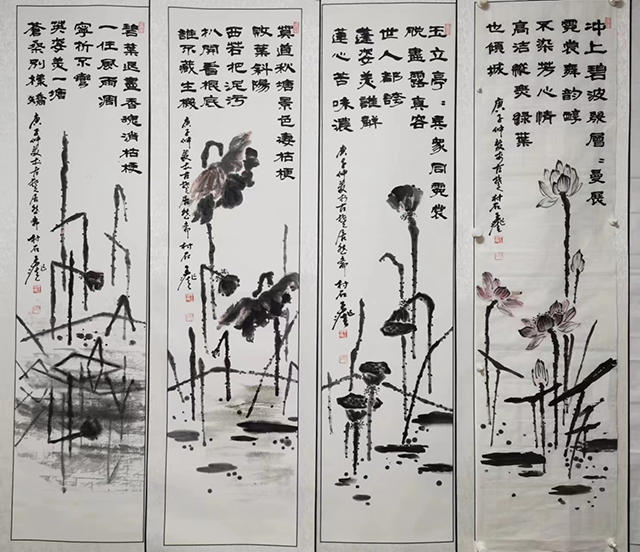 冲上碧波層〻曼展
霓裳舞韵醇
不染芳心情
高洁縱緑葉
也傾城
庚子仲夏
村石
玉立亭〻家同霓裳
脱盡露真容
世人都誇
蓬姿美誰解
蓮心苦味濃
庚子仲夏于古楚居然齋 村石
莫道秋塘景色凄枯梗
敗葉斜陽
西若把泥污
扒開看根底
誰不藏生機
庚子仲夏于古楚居然齋 村石
碧葉退盡香魂消枯梗
一任風雨凋
寧折不彎
英姿美一塘
蒼桑别樣嬌
庚子仲夏于古楚居然齋 村石